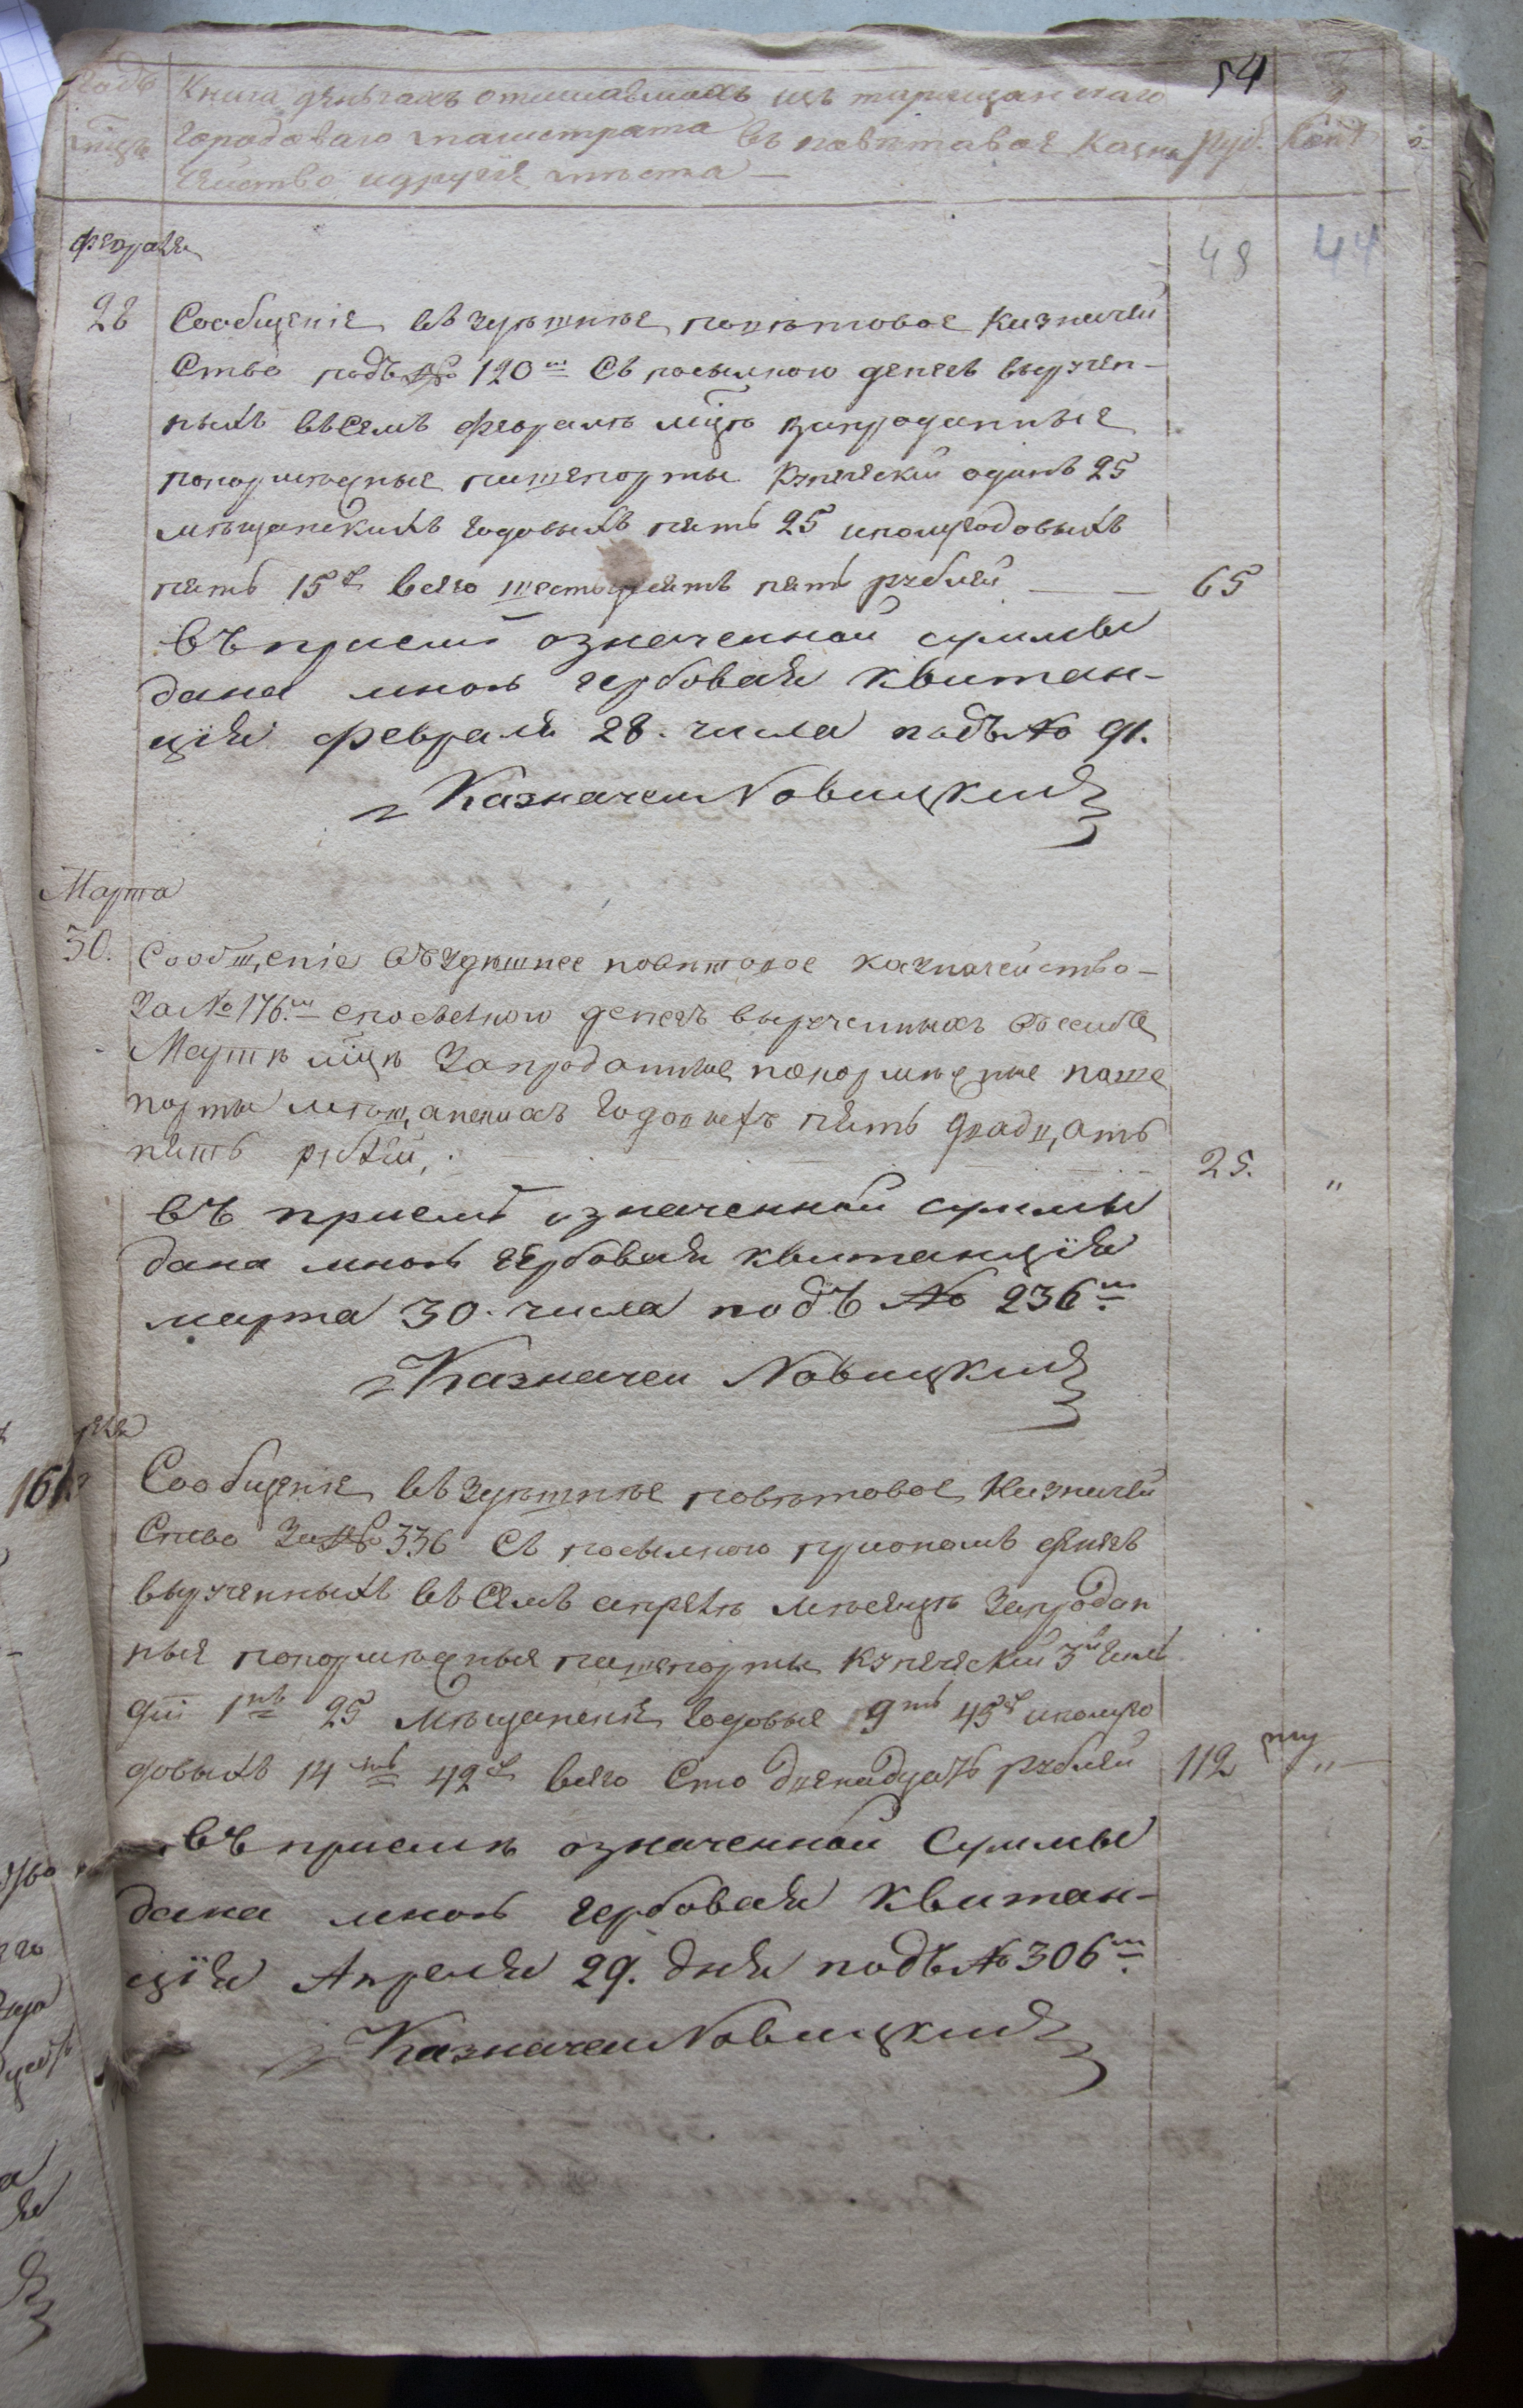 54
Годъ Книга деньгахъ отписавшихъ изъ таращанскаго
мцъ городоваго магистрата въ повѣтовое Казна Руб. Коп
чейство и другіе мѣста —
Февраля
48 44
28 Сообщеніе въ здѣшнѣе повѣтовое Казначей
Ство подъ № 120 м Съ посылкою денегъ выручен-
ныхъ въ Семъ февралѣ мцѣ запроданныя
покормежныя пашепорты купеческій одинъ 25
мѣщанскихъ годовыхъ пять 25 иполугодовыхъ
пять 15 р всего шестьдесятъ пять рублей — — 65
въ приемѣ означенной суммы
дана мною гербовая квитан-
ція февраля 28. числа подъ № 91.
Казначеи Новицкий
Марта
30. Сообщеніе въ здѣшнее повѣтовое казначейство —
За № 176. м спосылкою денегъ вырученныхъ въ семъ
Мартѣ мцѣ Запроданные покормежные паше
порты мѣщанскихъ годовыхъ пять двадцать
пять рублей, 25. "
въ приемѣ означенной суммы
дана мною гербовая квитанція
марта 30. числа подъ № 236 м
Казначеи Новицкий
161
Сообщеніе въ здѣшнѣе повѣтовое Казначей
Ство За № 336 Съ посылкою денегъ
вырученныхъ въ Семъ апрелѣ месяцѣ Запродан
ныя покормежныя пашепорты купеческій 3й
1нъ 25 Мѣщанскія годовые 9ть 45 р иполуго
довыхъ 14 ть 42 р всего Сто двенадцать рублей 112 "
въ приемѣ означенной Суммы
дана мною гербовая квитан-
ція Апреля 29. дня подъ № 306 м
Казначеи Новицкий